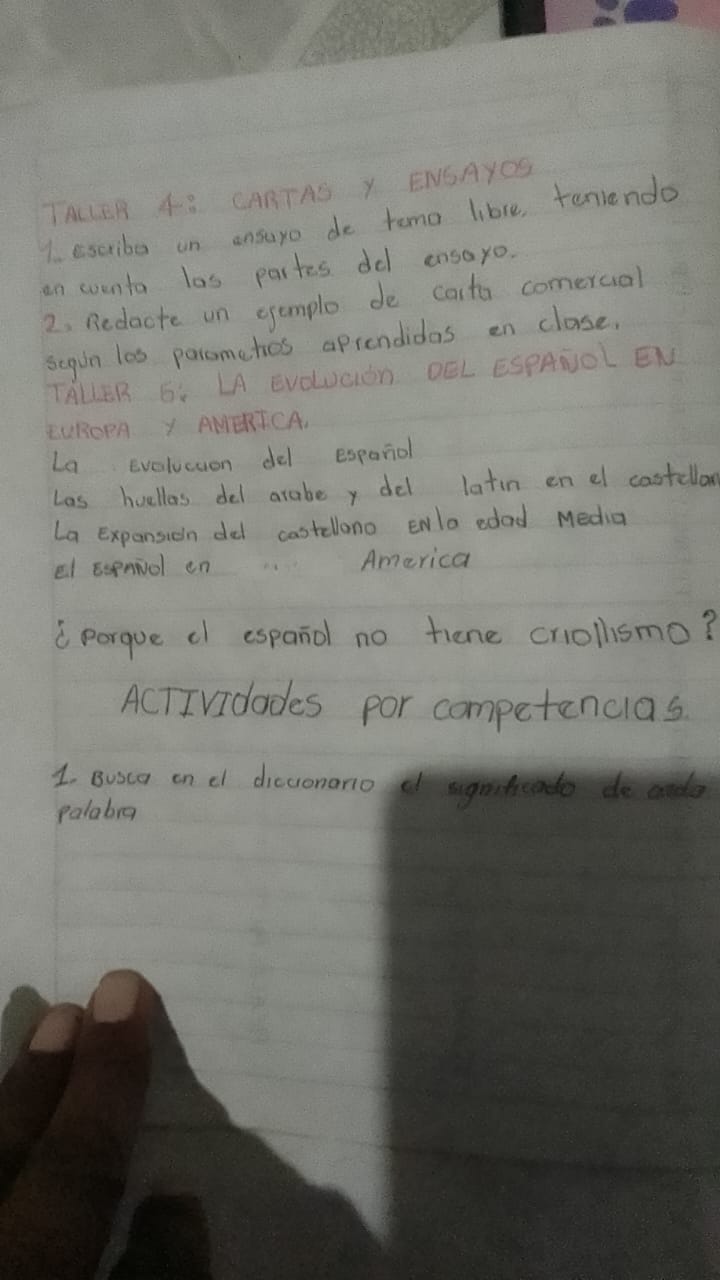 TALLER 4: CARTAS Y ENSAYOS
1. Escriba un ensayo de tema libre, teniendo
en cuenta las partes del ensayo.
2. Redacte un ejemplo de carta comercial
según los parametros aprendidos en clase.
TALLER 5: LA EVOLUCIÓN DEL ESPAÑOL EN
EUROPA Y AMERICA.
La Evolucion del Español
Las huellas del arabe y del latin en el castellan
La Expansión del castellano EN la edad Media
El ESPAÑOL en ... America
¿Porque el español no tiene criollismo?
ACTIVIdades por competencias.
1. Busca en el diccionario el significado de cada
palabra